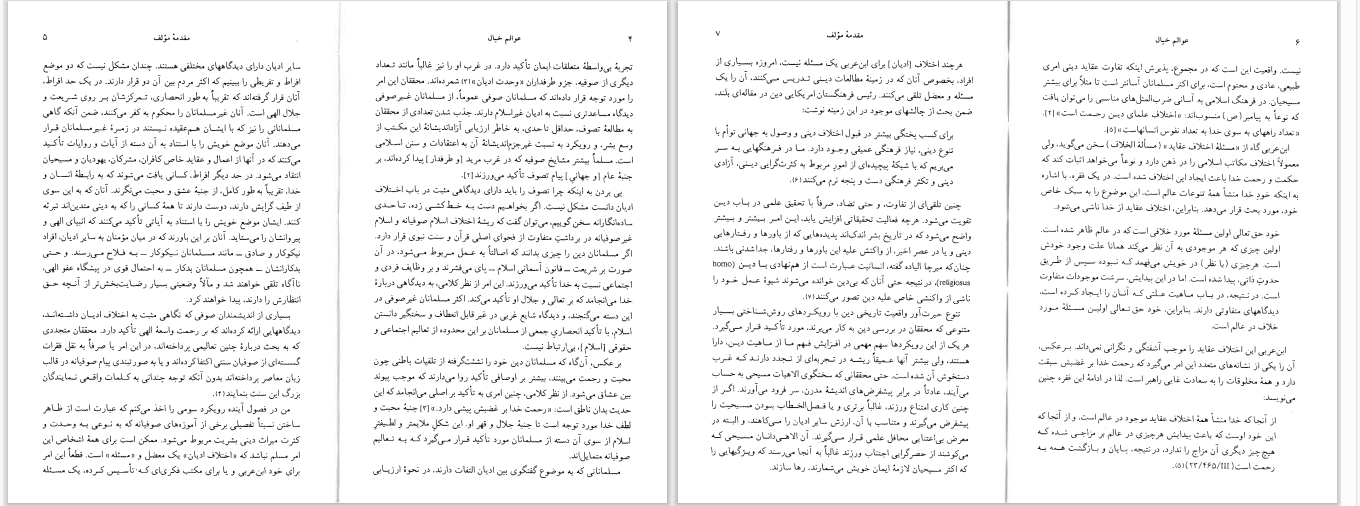 ۴ عوالم خیال
تجربهٔ بی‌واسطهٔ متعلقات ایمان تأکید دارد. در غرب او را نیز غالباً مانند تعداد
دیگری از صوفیه، جزو طرفداران «وحدت ادیان» [۳] شمرده‌اند. محققان این امر
را مورد توجه قرار داده‌اند که مسلمانان صوفی عموماً، از مسلمانان غیرصوفی
دیدگاه مساعدتری نسبت به ادیان غیراسلام دارند. جذب شدن تعدادی از محققان
به مطالعهٔ تصوف، حداقل تا حدی، به خاطر ارزیابی آزاداندیشانهٔ این مکتب از
وسع بشر، و رویکرد به نسبت غیرجزم‌اندیشانهٔ آن به اعتقادات و سنن اسلامی
است. مسلماً بیشتر مشایخ صوفیه که در غرب مرید [و طرفدار] پیدا کرده‌اند، بر
جنبهٔ عام [و جهانی] پیام تصوف تأکید می‌ورزند [۲].
پی بردن به اینکه چرا تصوف را باید دارای دیدگاهی مثبت در باب اختلاف
ادیان دانست مشکل نیست. اگر بخواهیم دست به خط‌کشی زده، تا حدی
ساده‌انگارانه سخن گوییم، می‌توان گفت که ریشهٔ اختلاف اسلام صوفیانه و اسلام
غیرصوفیانه در برداشتِ متفاوت از فحوای اصلی قرآن و سنت نبوی قرار دارد.
اگر مسلمانان دین را چیزی بدانند که اصالتاً به عمل مربوط می‌شود، در آن
صورت بر شریعت ــ قانون آسمانی اسلام ــ پای می‌فشرند و بر وظایف فردی و
اجتماعی نسبت به خدا تأکید می‌ورزند. این امر از نظر کلامی، به دیدگاهی دربارهٔ
خدا می‌انجامد که بر تعالی و جلال او تأکید می‌کند. اکثر مسلمانان غیرصوفی در
این دسته می‌گنجند، و دیدگاه شایع غربی در غیر قابل انعطاف و سختگیر دانستن
اسلام، با تأکید انحصاریِ جمعی از مسلمانان بر این محدوده از تعالیم اجتماعی و
حقوقی [اسلام]، بی‌ارتباط نیست.
برعکس، آن‌گاه که مسلمانان دین خود را نشئت‌گرفته از تلقیات باطنی چون
محبت و رحمت می‌بینند، بیشتر بر اوصافی تأکید روا می‌دارند که موجب پیوند
بین عشاق می‌شود. از نظر کلامی، چنین امری به تأکید بر اصلی می‌انجامد که این
حدیث بدان ناطق است: «رحمت خدا بر غضبش پیشی دارد.» [۳] جنبهٔ محبت و
لطف خدا مورد توجه است تا جنبهٔ جلال و قهر او. این شکلِ ملایمتر و لطیفتر
اسلام از سوی آن دسته از مسلمانان مورد تأکید قرار می‌گیرد که به تعالیم
صوفیانه متمایل‌اند.
مسلمانانی که به موضوع گفتگوی بین ادیان التفات دارند، در نحوهٔ ارزیابی
مقدمهٔ مؤلف ۵
سایر ادیان دارای دیدگاههای مختلفی هستند. چندان مشکل نیست که دو موضع
افراط و تفریطی را ببینیم که اکثر مردم بین آن دو قرار دارند. در یک حد افراط،
آنان قرار گرفته‌اند که تقریباً به طور انحصاری، تمرکزشان بر روی شریعت و
جلال الهی است. آنان غیرمسلمانان را محکوم به کفر می‌کنند، ضمن آنکه گاهی
مسلمانانی را نیز که با ایشان هم‌عقیده نیستند در زمرهٔ غیرمسلمانان قرار
می‌دهند. آنان موضع خویش را با استناد به آن دسته از آیات و روایات تأکید
می‌کنند که در آنها از اعمال و عقاید خاص کافران، مشرکان، یهودیان و مسیحیان
انتقاد می‌شود. در حد دیگر افراط، کسانی یافت می‌شوند که به رابطهٔ انسان و
خدا، تقریباً به طور کامل، از جنبهٔ عشق و محبت می‌نگرند. آنان که به این سوی
از طیف گرایش دارند، دوست دارند تا همهٔ کسانی را که به دینی متدین‌اند تبرئه
کنند. ایشان موضع خویش را با استناد به آیاتی تأکید می‌کنند که انبیای الهی و
پیروانشان را می‌ستاید. آنان بر این باورند که در میان مؤمنان به سایر ادیان، افراد
نیکوکار و صادق ــ مانند مسلمانان نیکوکار ــ به فلاح می‌رسند. و حتی
بدکارانشان ــ همچون مسلمانان بدکار ــ به احتمال قوی در پیشگاه عفو الهی،
ناآگاه تلقی خواهند شد و مآلاً وضعیتی بسیار رضایت‌بخش‌تر از آنچه حق
انتظارش را دارند، پیدا خواهند کرد.
بسیاری از اندیشمندان صوفی که نگاهی مثبت به اختلاف ادیان داشته‌اند،
دیدگاههایی ارائه کرده‌اند که بر رحمت واسعهٔ الهی تأکید دارد. محققان متجددی
که به بحث دربارهٔ چنین تعالیمی پرداخته‌اند، در این امر یا صرفاً به نقل فقرات
گسسته‌ای از صوفیان سنتی اکتفا کرده‌اند و یا به صورتبندی پیام صوفیانه در قالب
زبان معاصر پرداخته‌اند بدون آنکه توجه چندانی به کلمات واقعی نمایندگان
بزرگ این سنت بنمایند (۴).
من در فصول آینده رویکرد سومی را اخذ می‌کنم که عبارت است از ظاهر
ساختن نسبتاً تفصیلی برخی از آموزه‌های صوفیانه که به نوعی به وحدت و
کثرت میراث دینی بشریت مربوط می‌شود. ممکن است برای همهٔ اشخاص این
امر مسلم نباشد که «اختلاف ادیان» یک معضل و «مسئله» است. قطعاً این امر
برای خود ابن‌عربی و یا برای مکتب فکری‌ای که تأسیس کرده، یک مسئله
۶ عوالم خیال
نیست. واقعیت این است که در مجموع، پذیرش اینکه تفاوت عقاید دینی امری
طبیعی، عادی و محتوم است، برای اکثر مسلمانان آسانتر است تا مثلاً برای بیشتر
مسیحیان. در فرهنگ اسلامی به آسانی ضرب‌المثل‌های مناسبی را می‌توان یافت
که نوعاً به پیامبر (ص) منسوب‌اند: «اختلاف علمای دین رحمت است» [۴].
«تعداد راههای به سوی خدا به تعداد نفوس انسانهاست» [۵].
ابن‌عربی گاه از «مسئلهٔ اختلاف عقاید» (مسألة الخلاف) سخن می‌گوید، ولی
معمولاً اختلاف مکاتب اسلامی را در ذهن دارد و نوعاً می‌خواهد اثبات کند که
حکمت و رحمت خدا باعث ایجاد این اختلاف شده است. در یک فقره، با اشاره
به اینکه خودِ خدا منشأ همهٔ تنوعات عالم است، این موضوع را به سبک خاص
خود، مورد بحث قرار می‌دهد. بنابراین، اختلاف عقاید از خدا ناشی می‌شود.
خود حق تعالی اولین مسئلهٔ مورد خلافی است که در عالم ظاهر شده است.
اولین چیزی که هر موجودی به آن نظر می‌کند همانا علت وجود خودش
است. هرچیزی (با نظر) در خویش می‌فهمد که نبوده سپس از طریق
حدوثِ ذاتی، پیدا شده است. اما در این پیدایش، سرشت موجودات متفاوت
است. در نتیجه، در باب ماهیت علتی که آنان را ایجاد کرده است،
دیدگاههای متفاوتی دارند. بنابراین، خود حق تعالی اولین مسئلهٔ مورد
خلاف در عالم است.
ابن‌عربی این اختلاف عقاید را موجب آشفتگی و نگرانی نمی‌داند. برعکس،
آن را یکی از نشانه‌های متعدد این امر می‌گیرد که رحمت خدا بر غضبش سبقت
دارد و همهٔ مخلوقات را به سعادت غایی راهبر است. لذا در ادامهٔ این فقره چنین
می‌نویسد:
از آنجا که خدا منشأ همهٔ اختلاف عقاید موجود در عالم است، و از آنجا که
این خود اوست که باعث پیدایش هرچیزی در عالم بر مزاجی شده که
هیچ چیز دیگری آن مزاج را ندارد، در نتیجه، پایان و بازگشت همه به
رحمت است (۲۳/۴۶۵/III) (۵).
مقدمهٔ مؤلف ۷
هرچند اختلاف [ادیان] برای ابن‌عربی یک مسئله نیست، امروزه بسیاری از
افراد، بخصوص آنان که در زمینهٔ مطالعات دینی تدریس می‌کنند، آن را یک
مسئله و معضل تلقی می‌کنند. رئیس فرهنگستان امریکایی دین در مقاله‌ای بلند،
ضمن بحث از چالشهای موجود در این زمینه نوشت:
برای کسب پختگی بیشتر در قبول اختلاف دینی و وصول به جهانی توأم با
تنوع دینی، نیاز فرهنگی عمیقی وجود دارد. ما در فرهنگهایی به سر
می‌بریم که با شبکهٔ پیچیده‌ای از امور مربوط به کثرت‌گرایی دینی، آزادی
دینی و تکثر فرهنگی دست و پنجه نرم می‌کنند (۶).
چنین تلقی‌ای از تفاوت، و حتی تضاد، صرفاً با تحقیق علمی در باب دین
تقویت می‌شود. هرچه فعالیت تحقیقاتی افزایش یابد، این امر بیشتر و بیشتر
واضح می‌شود که در تاریخ بشر اندک‌اند پدیده‌هایی که از باورها و رفتارهایی
دینی و یا در عصر اخیر، از واکنش علیه این باورها و رفتارها، جدا شدنی باشند.
چنان‌که میرچا الیاده گفته، انسانیت عبارت است از هم‌نهادی با دین (homo
religiosus)، در نتیجه حتی آنان که بی‌دین خوانده می‌شوند شیوهٔ عمل خود را
ناشی از واکنشی خاص علیه دین تصور می‌کنند (۷).
تنوع حیرت‌آور واقعیت تاریخی دین با رویکردهای روش‌شناختی بسیار
متنوعی که محققان در بررسی دین به کار می‌برند، مورد تأکید قرار می‌گیرد.
هر یک از این رویکردها سهم مهمی در افزایش فهم ما از ماهیت دین، دارا
هستند، ولی بیشتر آنها عمیقاً ریشه در تجربه‌ای از تجدد دارند که غرب
دستخوش آن شده است. حتی محققانی که سخنگوی الاهیات مسیحی به حساب
می‌آیند، عادتاً در برابر پیشفرض‌های اندیشهٔ مدرن، سر فرود می‌آورند. اگر از
چنین کاری امتناع ورزند، غالباً برتری و یا فصل‌الخطاب بودن مسیحیت را
پیشفرض می‌گیرند و متناسب با آن، ارزش سایر ادیان را می‌کاهند، و البته در
معرض بی‌اعتنایی محافل علمی قرار می‌گیرند. آن الاهی‌دانان مسیحی که
می‌کوشند از حصرگرایی اجتناب ورزند غالباً به آنجا می‌رسند که ویژگیهایی را
که اکثر مسیحیان لازمهٔ ایمان خویش می‌شمارند، رها سازند.